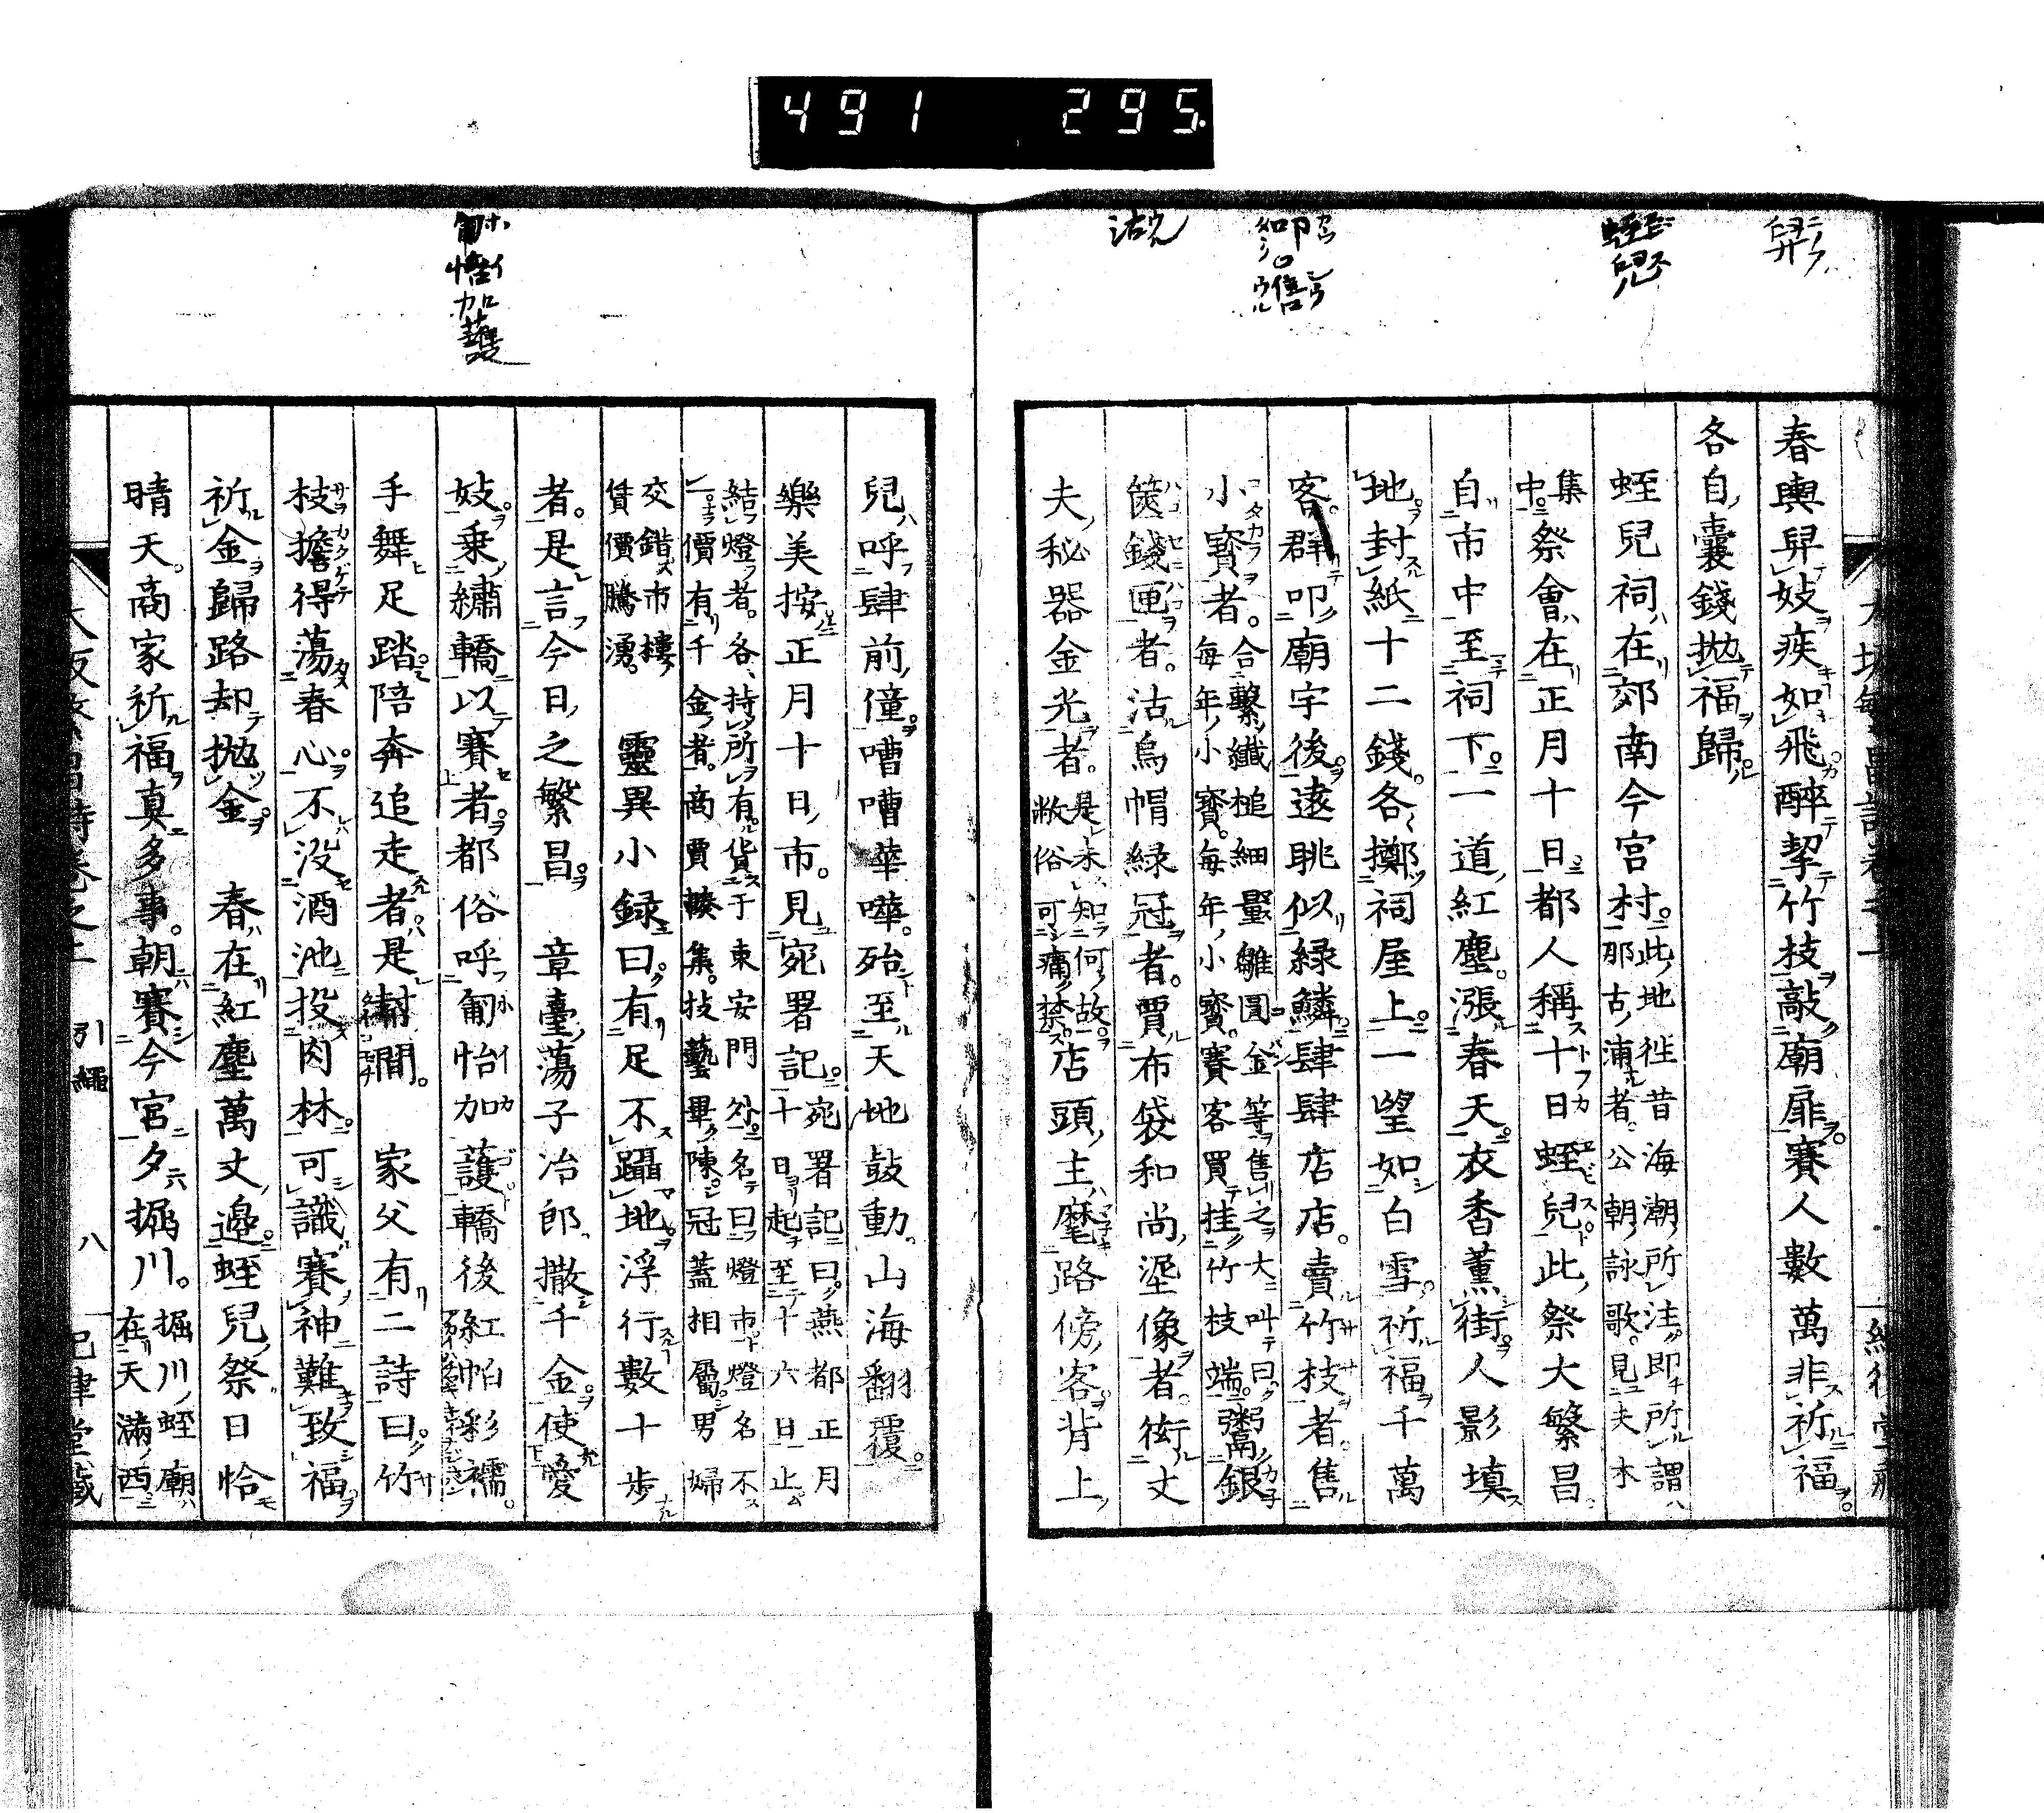 491 295.
舁
蛭兒
叩
售
沽
春輿舁妓疾如飛醉挈竹枝敲廟扉賽人數萬非祈福
各自囊錢拋福歸
蛭兒祠在郊南今宮村此地徃昔海潮所洼即所謂
那古浦者公朝詠歌見夫木
集中祭會在正月十日都人稱十日蛭兒此祭大繁昌
自市中至祠下一道紅塵漲春天衣香薰街人影填
地封紙十二錢各擲祠屋上一望如白雪祈福千萬
客群叩廟宇後遠眺似緑鱗肆肆店店賣竹枝者售
小寳者合繫纖槌細量雛圓金等售之大叫曰
每年小寳每年小寳賽客買挂竹枝端鬻銀
篋錢匣者沽烏帽緑冠者賈布袋和尚塑像者衒丈
夫秘器金光者是未知何故
敝俗可痛禁店頭主麾路傍客背上
兒呼肆前僮嘈嘈華嘩殆至天地鼓動山海翻覆
樂美按正月十日市見宛署記宛署記曰燕都正月
十日起至十六日止
結燈者各持所有貨于東安門外名曰燈市燈名不
一價有千金者商賈輳集技藝畢陳冠蓋相屬男婦
交錯市樓
賃價騰湧
靈異小録曰有足不躡地浮行數十步
者是言今日之繁昌 章臺蕩子冶郎撒千金使愛
妓乘繡轎以賽者都俗呼匍怡加護轎後紅帕彩襦
手舞足踏陪奔追走者是幇間 家父有二詩曰竹
枝擔得蕩春心不没酒池投肉林可識賽神難致福
祈金歸路却拋金 春在紅塵萬丈邉蛭兒祭日恰
晴天商家祈福真多事朝賽今宮夕掘川掘川蛭廟
在天滿西
引繩 八